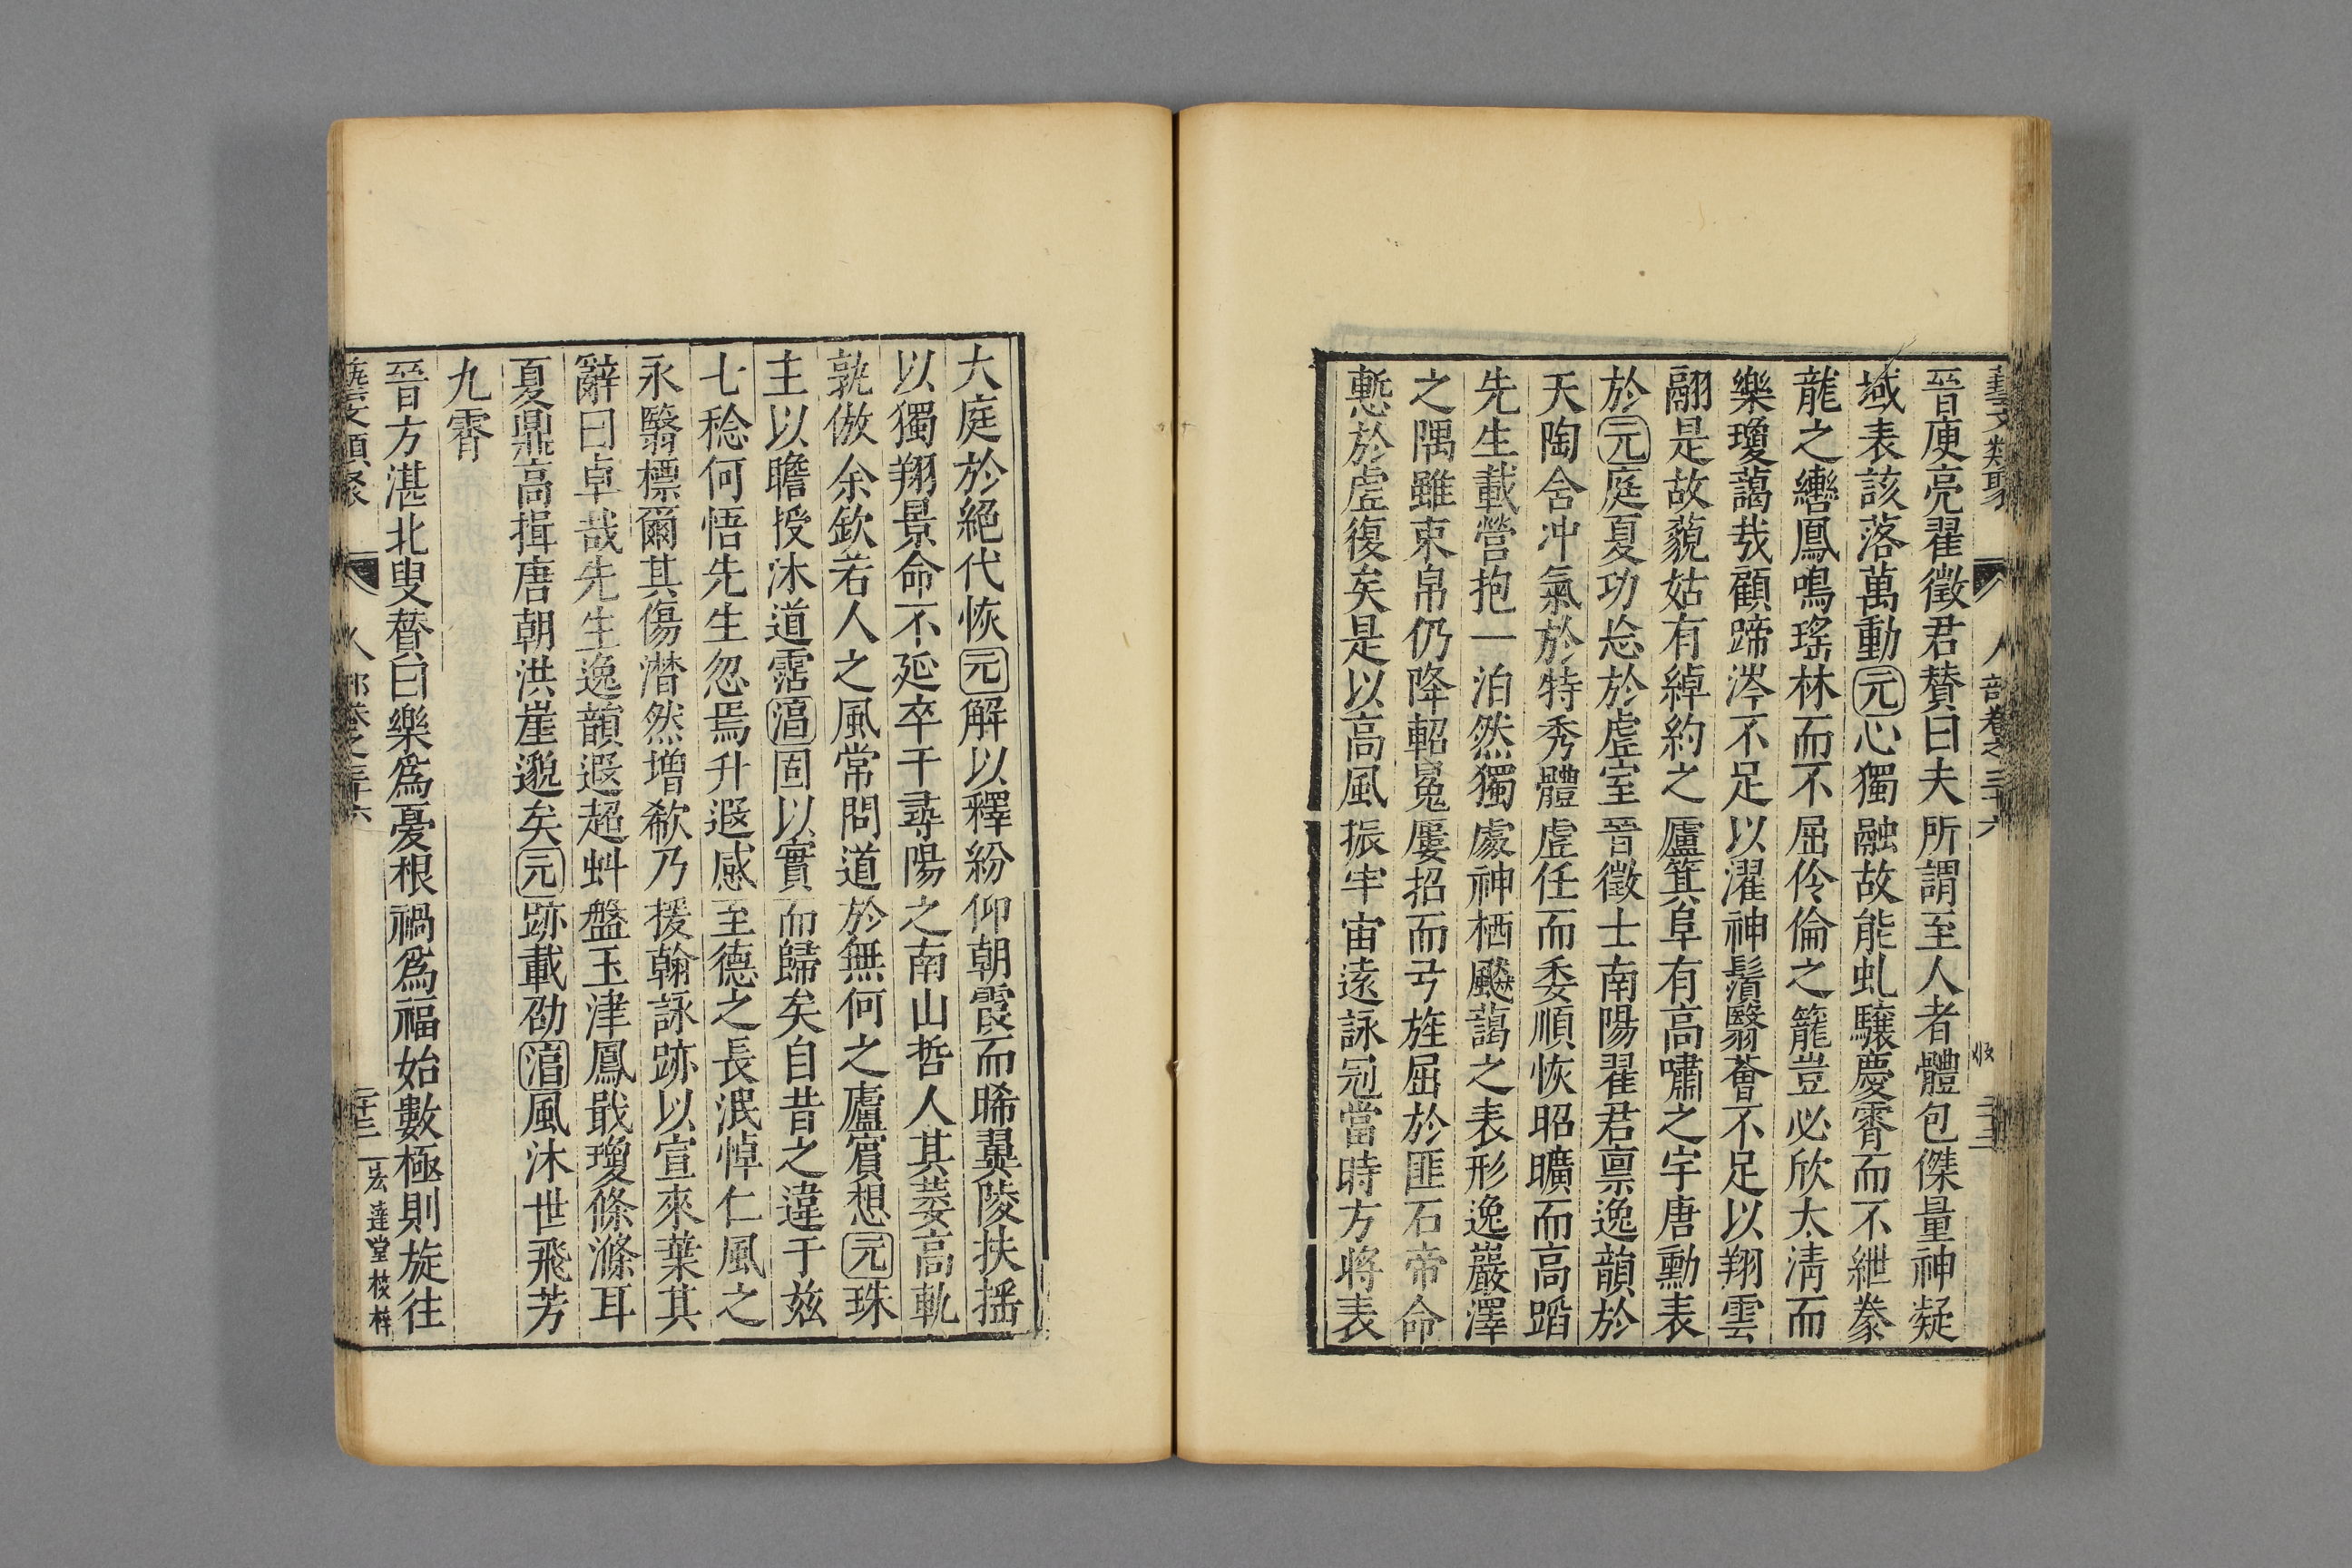 藝文類聚 人部卷之三十六
晉庾亮翟徵君贊曰夫所謂至人者體包傑量神凝
域表該落萬動元心獨融故能虬驤慶霄而不紲豢
龍之轡鳳鳴瑤林而不屈伶倫之籠豈必欣太清而
樂瓊藹哉顧蹄涔不足以濯神鬚翳薈不足以翔雲
翮是故藐姑有綽約之廬箕阜有高嘯之宇唐勳表
於元庭夏功忘於虛室晉徵士南陽翟君禀逸韻於
天陶含冲氣於特秀體虛任而委順恢昭曠而高蹈
先生載營抱一泊然獨處神栖飇藹之表形逸巖澤
之隅雖束帛仍降軺冕屢招而弓旌屈於匪石帝命
慙於虛復矣是以高風振宇宙遠詠冠當時方將表
大庭於絕代恢元解以釋紛仰朝霞而晞翼陵扶搖
以獨翔景命不延卒于尋陽之南山哲人其萎高軌
孰倣余欽若人之風常問道於無何之廬賓想元珠
主以瞻授沐道霑湻固以實而歸矣自昔之違于兹
七稔何悟先生忽焉升遐感至德之長泯悼仁風之
永翳標爾其傷潸然增欷乃援翰詠跡以宣來葉其
辭曰卓哉先生逸韻遐超蚪盤玉津鳳戢瓊條滌耳
夏鼎高揖唐朝洪崖邈矣元跡載劭湻風沐世飛芳
九霄
晉方湛北叟贊曰樂爲憂根禍爲福始數極則旋往
藝文類聚 人部卷之三十六 二十三 宏達堂校梓